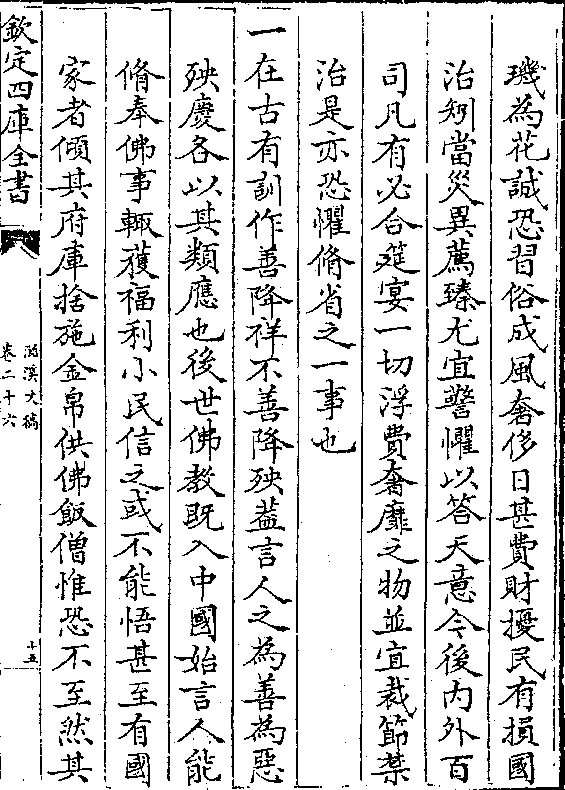 璣為花誠恐習俗成風奢侈日甚費財擾民有損國
治矧當災異薦臻尤宜警懼以答天意今後内外百
司凡有必合筵宴一切浮費奢靡之物並宜裁節禁
治是亦恐懼脩省之一事也
一在古有訓作善降祥不善降殃蓋言人之為善為惡
殃慶各以其類應也後世佛教既入中國始言人能
脩奉佛事輙獲福利小民信之或不能悟甚至有國
家者傾其府庫捨施金帛供佛飯僧惟恐不至然其
欽定四庫全書
滋溪文稿
卷二十六
十五